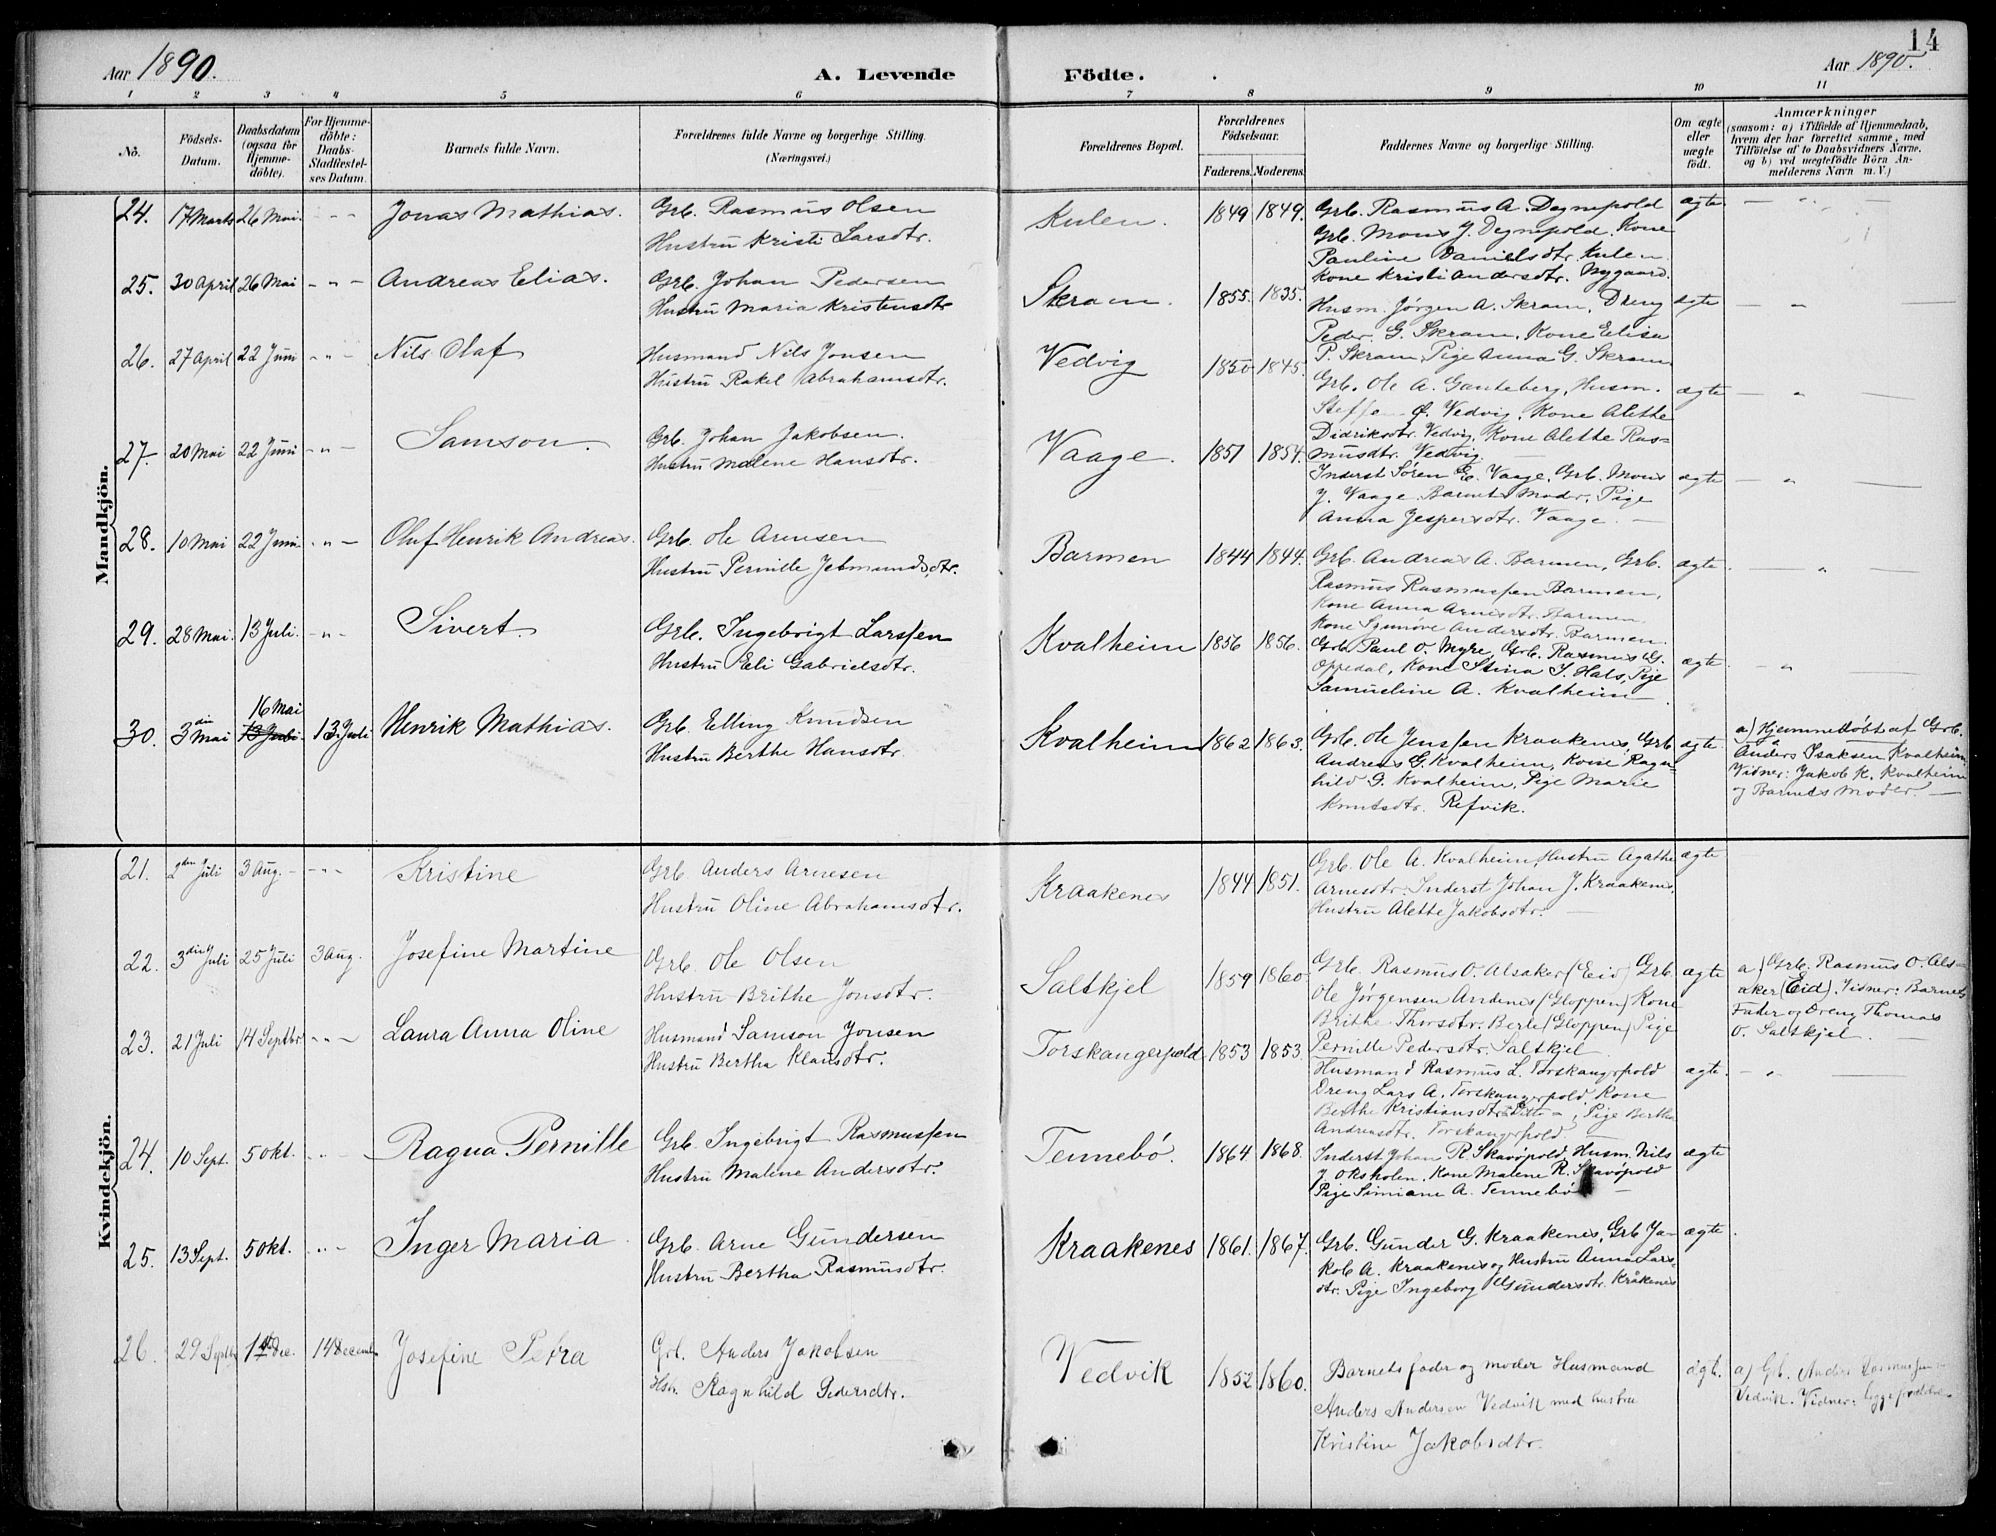 14
Aar 1890.
A. Levende
Födte.
Aar 1890.
1 2 3 4 5 6 7 8 9 10 11
No.
Födsels-Datum.
Daabsdatum (ogsaa for Hjemme-döbte).
For Hjemme-döbte: Daabs-Stadfæstel-ses Datum.
Barnets fulde Navn.
Forældrenes fulde Navne og borgerlige Stilling. (Næringsvei.)
Forældrenes Bopæl.
Forældrenes Födselsaar.
Faderens. Moderens.
Faddernes Navne og borgerlige Stilling.
Om ægte eller uægte födt.
Anmærkninger
(saasom: a) i Tilfælde af Hjemmedaab,
hvem der har forrettet samme, med
Tilföielse af to Daabsvidners Navne,
og b) ved uægtefödte Börn An-
melderens Navn m. V.)
Mandkjön.
24. 17 Marts 26 Mai. - - Jonas Mathias. Grb. Rasmus Olsen
Hustru Kristi Larsdtr.
Kulen. 1849 1849. Grb. Rasmus A. Degnepold ægte — " —
Grb. Mons J. Degnepold, Kone
Pauline Danielsdtr. Kulen
Kone Kristi Andersdtr. Nygaard.
25. 30 April 26 Mai - " - Andreas Elias. Grb. Johan Pedersen
Hustru Maria Kristensdtr
Skram. 1855. 1835. Husm. Jørgen A. Skram, Dreng ægte — " —
Peder G. Skram, Kone Elisa
P. Skram, Pige Anna G. Skram
26. 27 April 22 Juni - " - Nils Olaf Husmand Nils Jonsen
Hustru Rakel Abrahamsdtr.
Vedvig 1850 1845. Grb. Ole A. Ganteberg, Husm. ægte — " —
Steffen Ø. Vedvig, Kone Alethe
Didriksdtr. Vedvig, Kone Alethe Ras-
musdtr. Vedvig.
27. 20 Mai 22 Juni - " - Samson. Grb. Johan Jakobsen.
Hustru Malene Hansdtr.
Vaage. 1851 1854. Inderst Søren E. Vaage, Grb. Mons ægte — " —
J. Vaage. Barnets Moder, Pige
Anna Jespersdtr. Vaage. —
28. 10 Mai 22 Juni - " - Oluf Henrik Andreas. Grb. Ole Arnesen
Hustru Pernille Jetmundsdtr.
Barmen 1844 1844. Grb. Andreas A. Barmen, Grb. ægte — " —
Rasmus Rasmussen Barmen,
Kone Anna Arnesdtr. Barmen,
Kone Synnøve Andersdtr. Barmen.
29. 28 Mai. 13 Juli. - " - Sivert. Grb. Ingebrigt Larssen
Hustru Eli Gabrielsdtr.
Kvalheim 1856 1856. Grb. Paul O. Myre, Grb. Rasmus G. ægte - "
Oppedal, Kone Stina J. Hals, Pige
Samueline A. Kvalheim
30. 3 din Mai 16 Mai 13 Juli 13. Juli Henrik Mathias. Grb. Elling Knudsen
Hustru Berthe Hansdtr.
Kvalheim 1862 1863. Grb. Ole Jenssen Kraakenes, Grb. ægte a) Hjemmedøbt af Grb.
Andreas G. Kvalheim, Kone Ragn- Anders Isaksen Kvalheim.
hild G. Kvalheim, Pige Marie Vidner: Jakob K. Kvalheim
Knutsdtr. Refvik. og Barnets Moder. —
Kvindekjön.
21. 2den Juli 3 Aug. - - " - Kristine Grb. Anders Arnesen
Hustru Oline Abrahamsdtr.
Kraakenes 1844 1851. Grb. Ole A. Kvalheim, Hustru Agathe ægte
Arnesdtr. Inderst Johan J. Kraakenes,
Hustru Alette Jakobsdtr. —
22. 3 din Juli 25 Juli 3 Aug. Josefine Martine Grb. Ole Olsen
Hustru Brithe Jonsdtr.
Saltkjel 1859 1860. Grb. Rasmus O. Alsaker (Eid) Grb. ægte a) Grb. Rasmus O. Als-
Ole Jørgensen Andenes (Gloppen) Kone aker (Eid). Vidner: Barnets
Brithe Thorsdtr. Berle (Gloppen) Pige Fader og Dreng Thomas
Pernille Pedersdtr. Saltkjel O. Saltskjel. —
23. 21 Juli 14 Septbr - " - Laura Anna Oline Husmand Samson Jonsen
Hustru Bertha Klausdtr.
Torskangerpold 1853 1853. Husmand Rasmus L. Torskangerpold ægte. - " —
Dreng Lars A. Torskangerpold, Kone
Berthe Kristiansdtr. Ditto, Pige Berthe
Andreasdtr. Torskangerpold. —
24. 10 Sept. 5 Okt. - " - Ragna Pernille Grb. Ingebrigt Rasmussen
Hustru Malene Andersdtr.
Tennebø. 1864 1868. Inderst Johan R. Skavøpold, Husm. Nils ægte
J. Oksholen, Kone Malene R. Skavøpold
Pige Simiane A. Tennebø —
25. 13 Sept. 5 Okt. " - Inger Maria Grb. Arne Gundersen
Hustru Bertha Rasmusdtr.
Kraakenes 1861. 1867. Grb. Gunder G. Kraakenes, Grb. Ja- ægte.
kob A. Kraakenes og Hustru Anna Lars-
dtr. Pige Ingeborg Gundersdtr. Kråkenes
26. 29 Septbr 1ste Dec. 14 December Josefine Petra Grb. Anders Jakobsen
Hstr. Ragnhild Pedersdtr.
Vedvik 1852 1860. Barnets fader og moder Husmand ægt. a) Gb. Anders Rasmussen
Anders Andersen Vedvik med hustru Vedvik. Vidner: begge
Kristine Jakobsdtr.